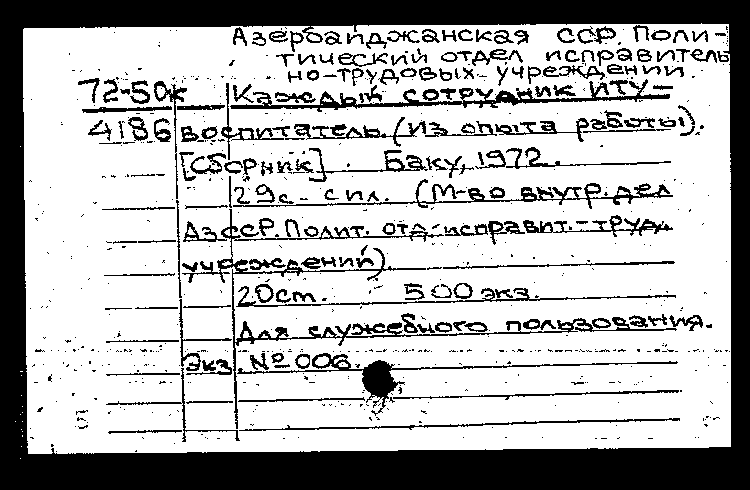 Азербайджанская ССР. Поли-
тический отдел исправитель
но-трудовых учреждений.
72-50к Каждый сотрудник ИТУ-
4186 воспитатель. (Из опыта работы).
[Сборник]. Баку, 1972.
29с. с ил. (М-во внутр. дел
АзССР. Полит. отд. исправит.-труд.
учреждений).
20см. 500 экз.
Для служебного пользования.
Экз. № 006.